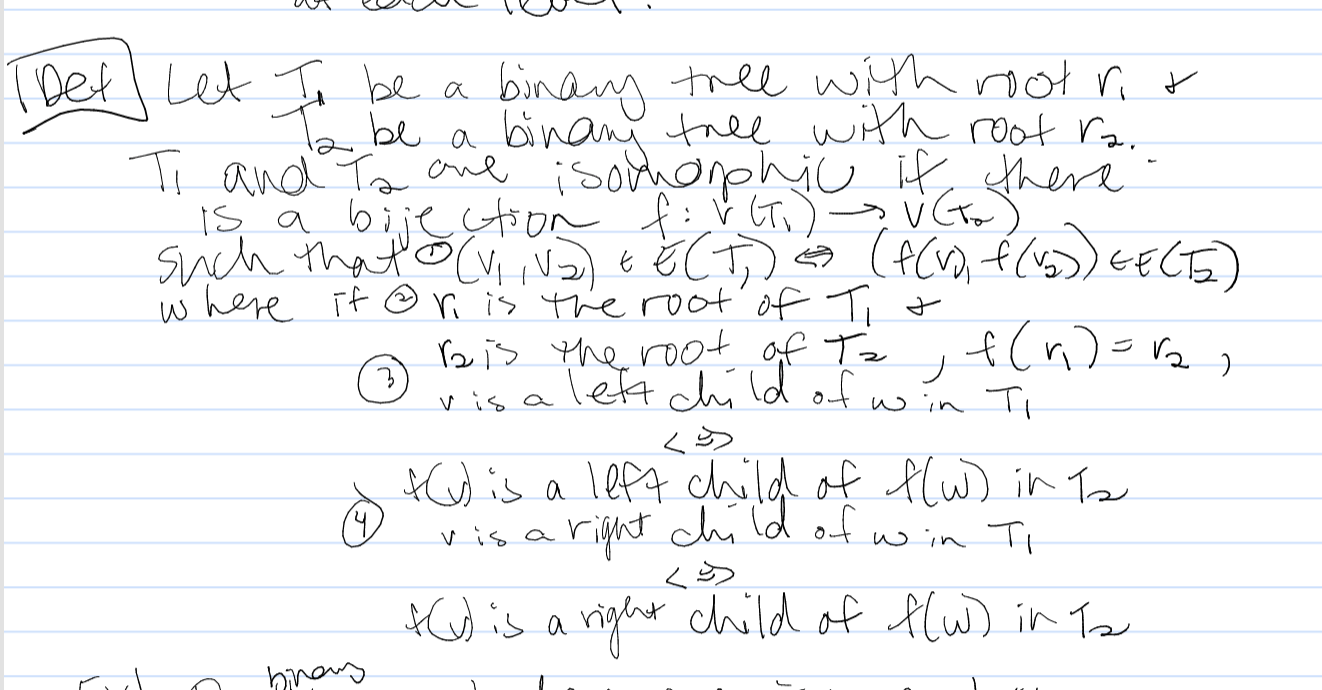 Def Let T₁ be a binary tree with root r₁ &
T₂ be a binary tree with root r₂.
T₁ and T₂ are isomorphic if there
is a bijection f: V(T₁) → V(T₂)
such that ① (v₁, v₂) ∈ E(T₁) ⇔ (f(v₁), f(v₂)) ∈ E(T₂)
where if ② r₁ is the root of T₁ &
r₂ is the root of T₂, f(r₁) = r₂,
③ v is a left child of w in T₁
<=>
f(v) is a left child of f(w) in T₂
④ v is a right child of w in T₁
<=>
f(v) is a right child of f(w) in T₂
binary